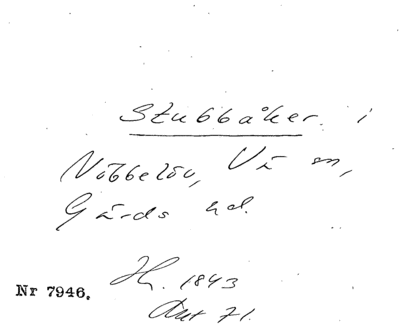 Stubbåker i
Nöbbelöv, Vä sn,
Gärds hd.
Nr 7946.
1843
71.